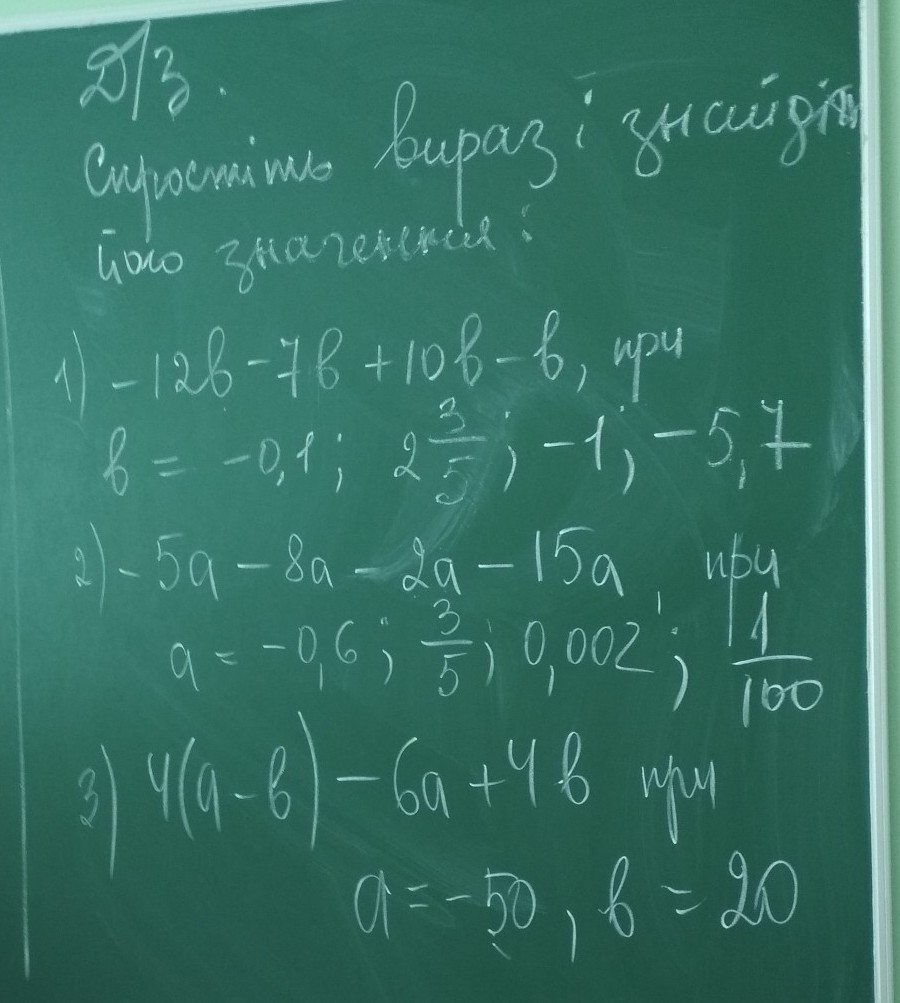 Д/З.
Спростіть вираз і знайдіть
його значення:
1) -12в - 7в + 10в - в, при
в = -0,1; 2 3/5; -1; -5,7
2) -5а - 8а - 2а - 15а, при
а = -0,6; 3/5; 0,002; 1/100
3) 4(а - в) - 6а + 4в при
а = -50, в = 20